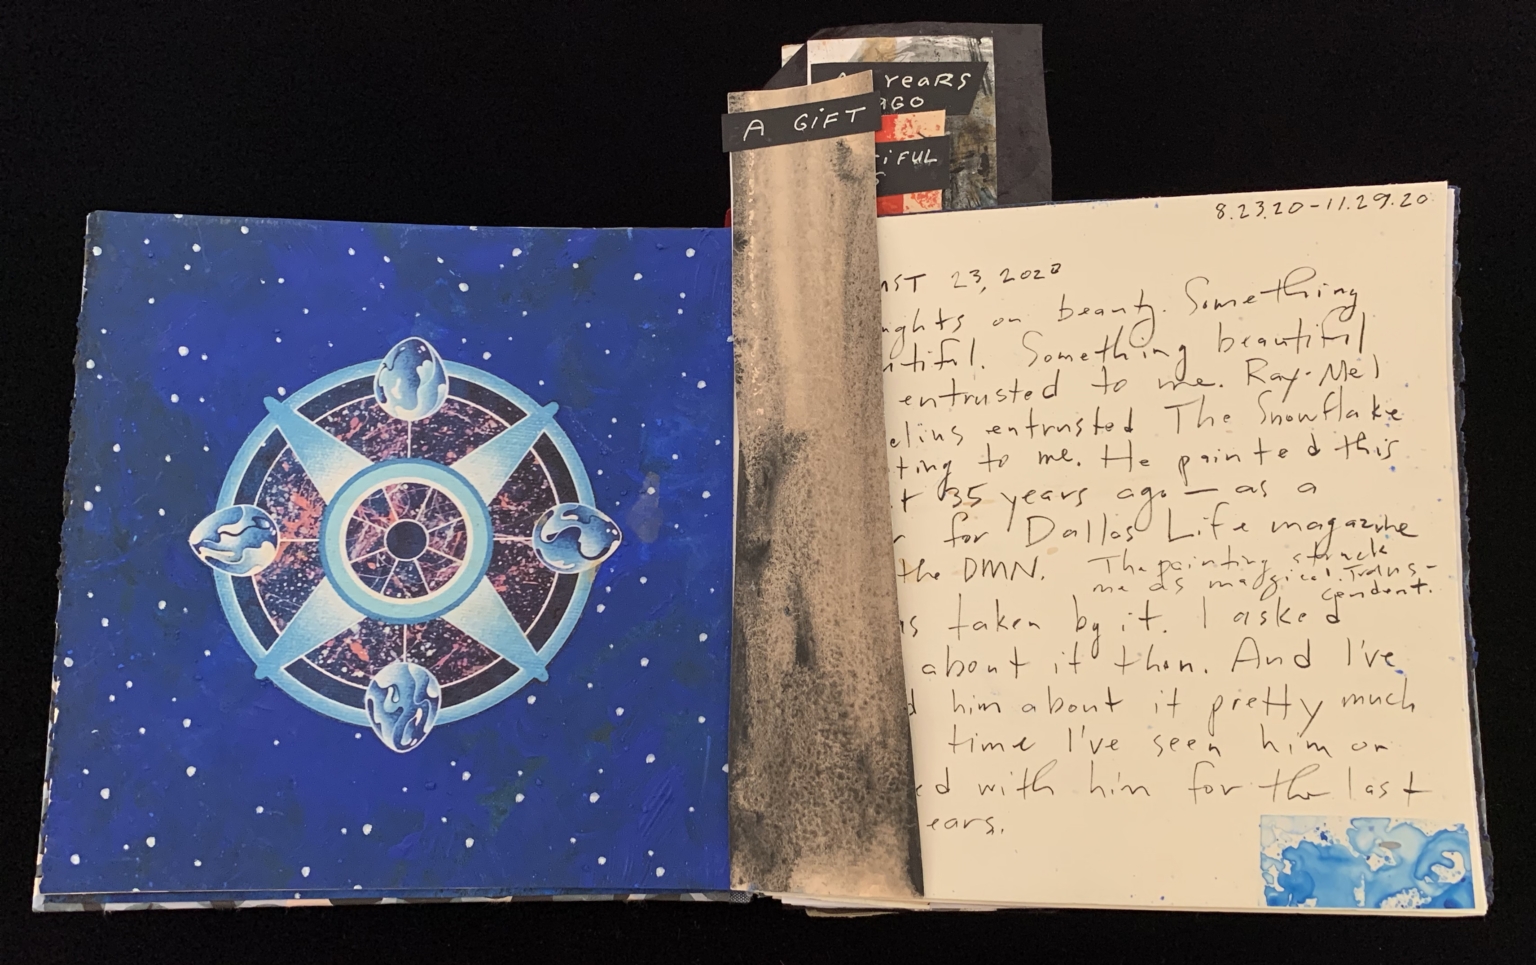 YEARS
AGO
A GIFT
IFUL
8.23.20-11.29.20
UST 23, 2020
ughts on beauty. Something
utiful. Something beautiful
entrusted to me. Ray-Mel
elius entrusted The Snowflake
ting to me. He painted this
t 35 years ago — as a
r for Dallas Life magazine
the DMN. The painting struck
me as magical. Trans-
cendent.
s taken by it. I asked
about it then. And I've
d him about it pretty much
time I've seen him or
ed with him for the last
ears.